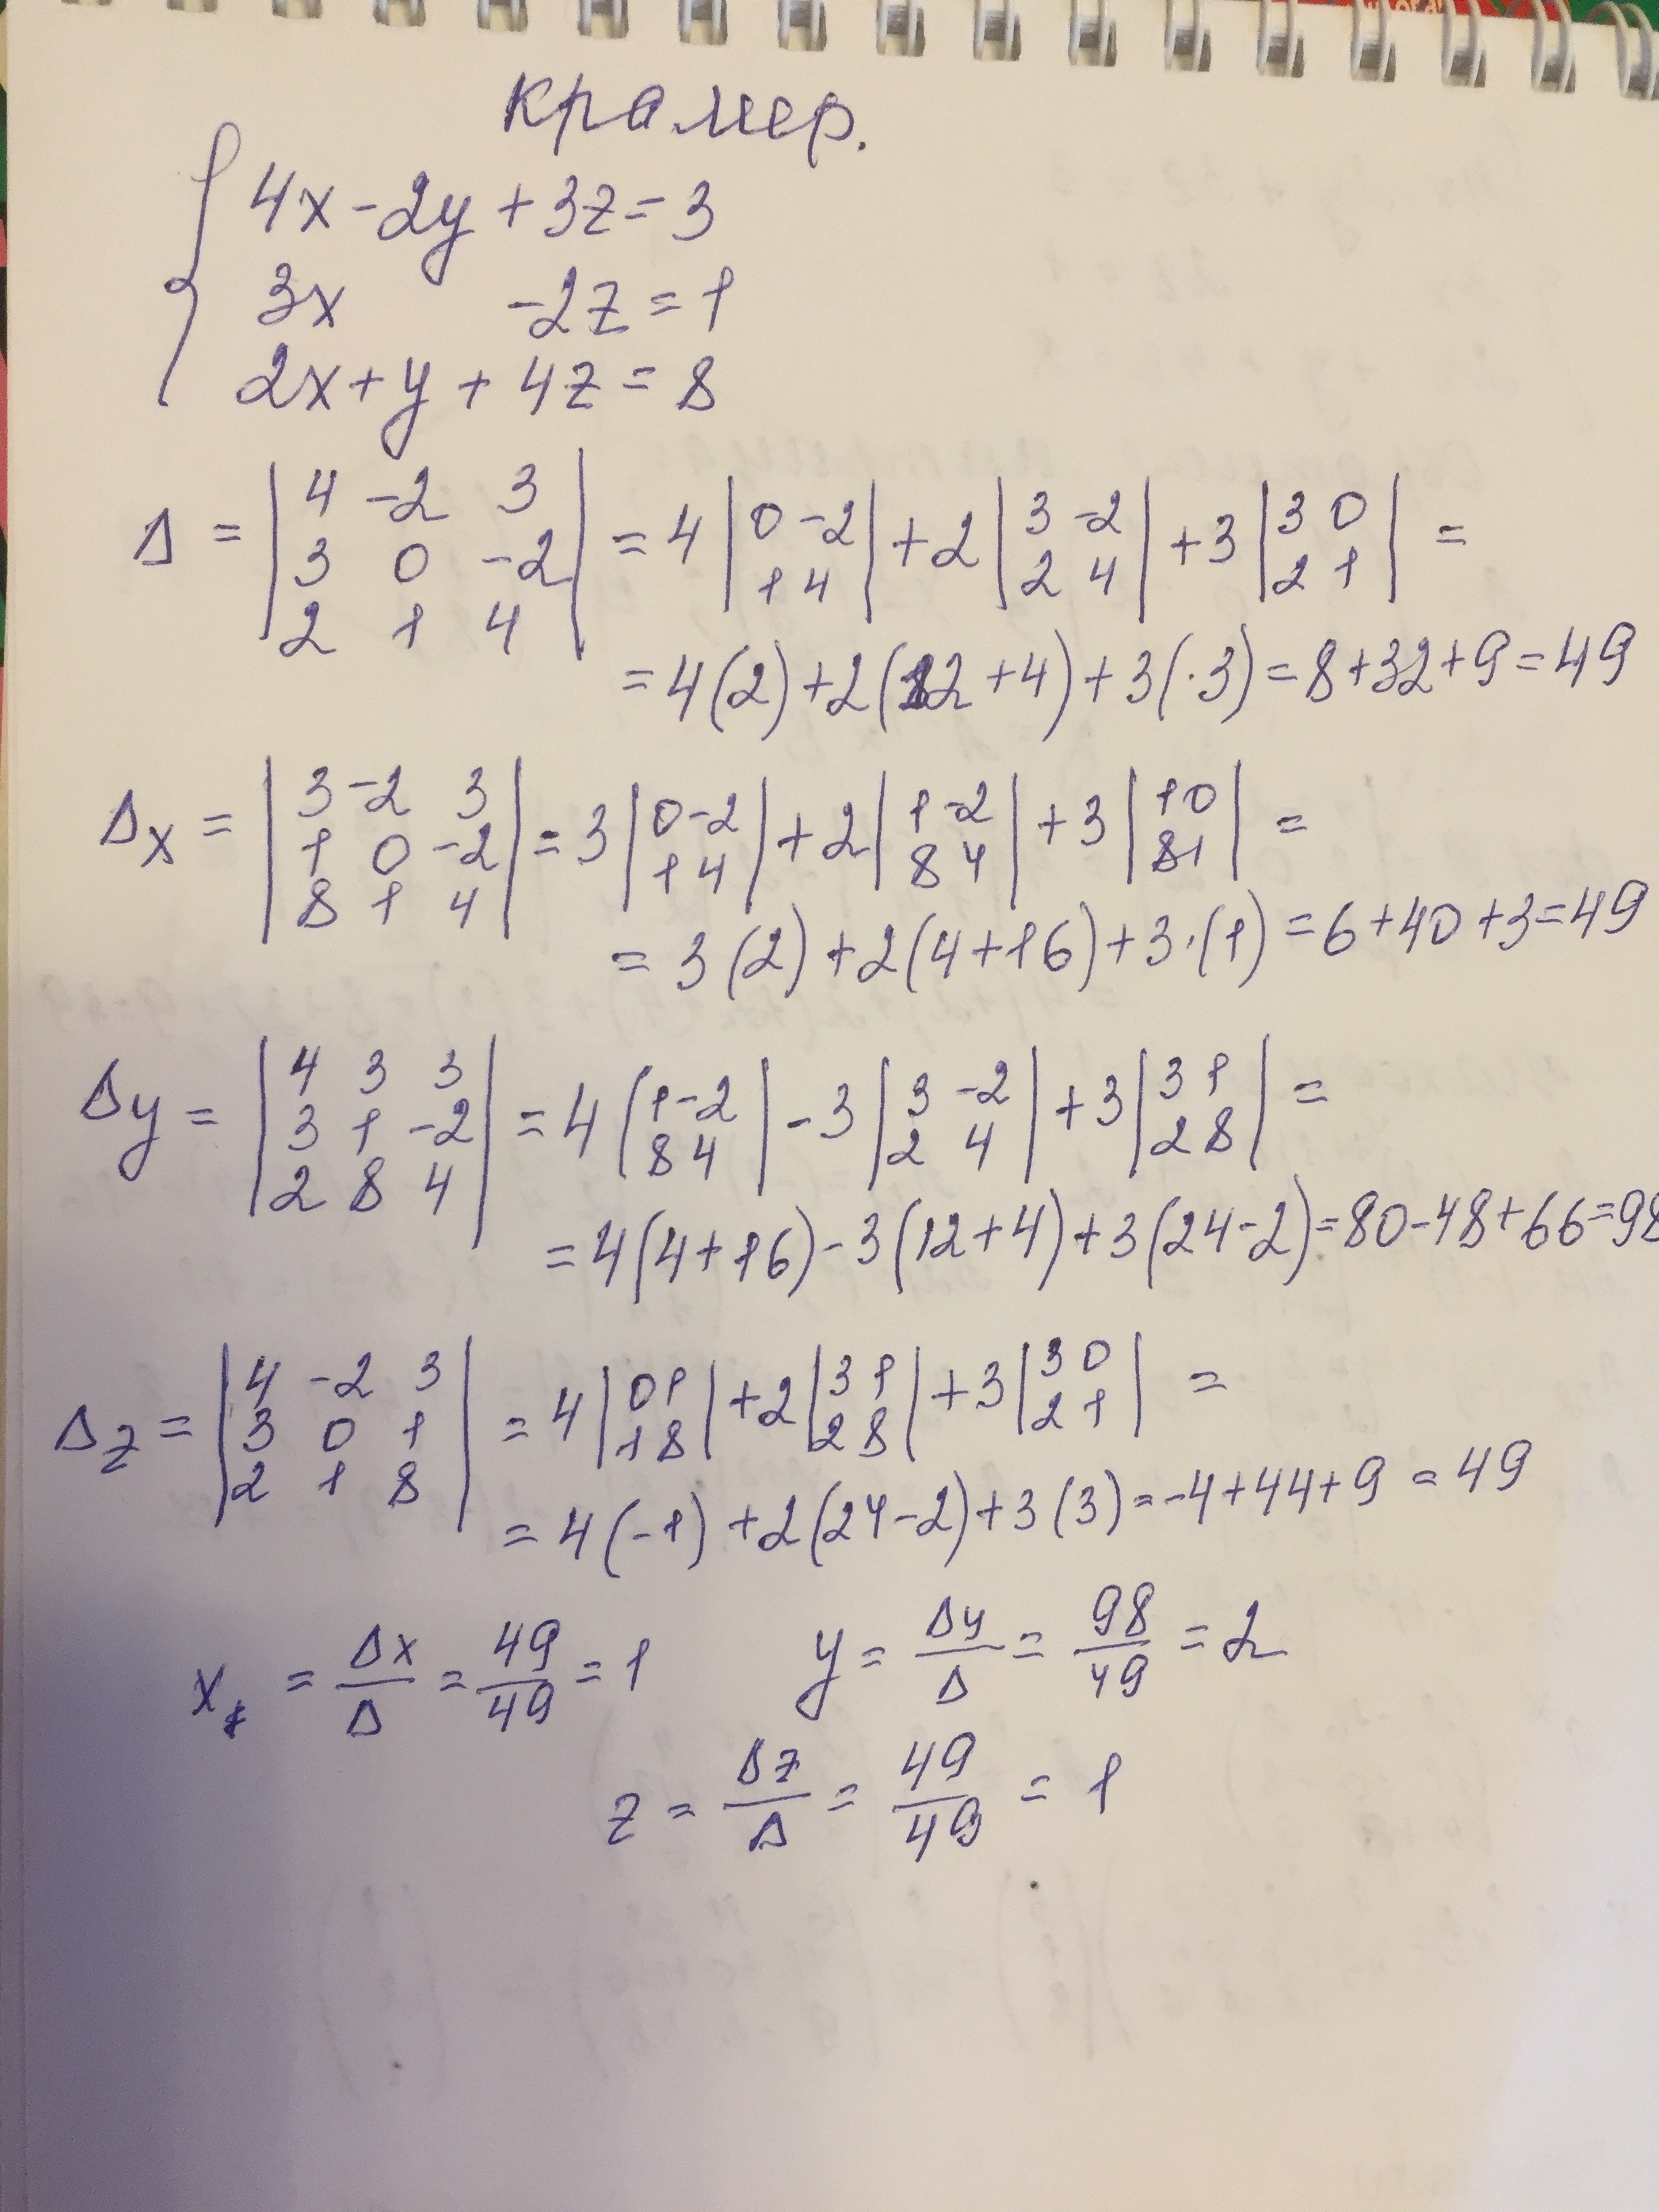 Крамер.
4x-2y+3z=3
3x -2z=1
2x+y+4z=8
Δ = |4 -2 3; 3 0 -2; 2 1 4| = 4|0 -2; 1 4| +2|3 -2; 2 4| +3|3 0; 2 1| =
= 4(2)+2(12+4)+3(·3)=8+32+9=49
Δx = |3 -2 3; 1 0 -2; 8 1 4| = 3|0 -2; 1 4| +2|1 -2; 8 4| +3|1 0; 8 1| =
= 3(2)+2(4+16)+3·(1)=6+40+3=49
Δy = |4 3 3; 3 1 -2; 2 8 4| = 4|1 -2; 8 4| -3|3 -2; 2 4| +3|3 1; 2 8| =
=4(4+16)-3(12+4)+3(24-2)=80-48+66=98
Δz = |4 -2 3; 3 0 1; 2 1 8| = 4|0 1; 1 8| +2|3 1; 2 8| +3|3 0; 2 1| =
= 4(-1)+2(24-2)+3(3)=-4+44+9=49
x = Δx/Δ = 49/49 = 1 y = Δy/Δ = 98/49 = 2
z = Δz/Δ = 49/49 = 1